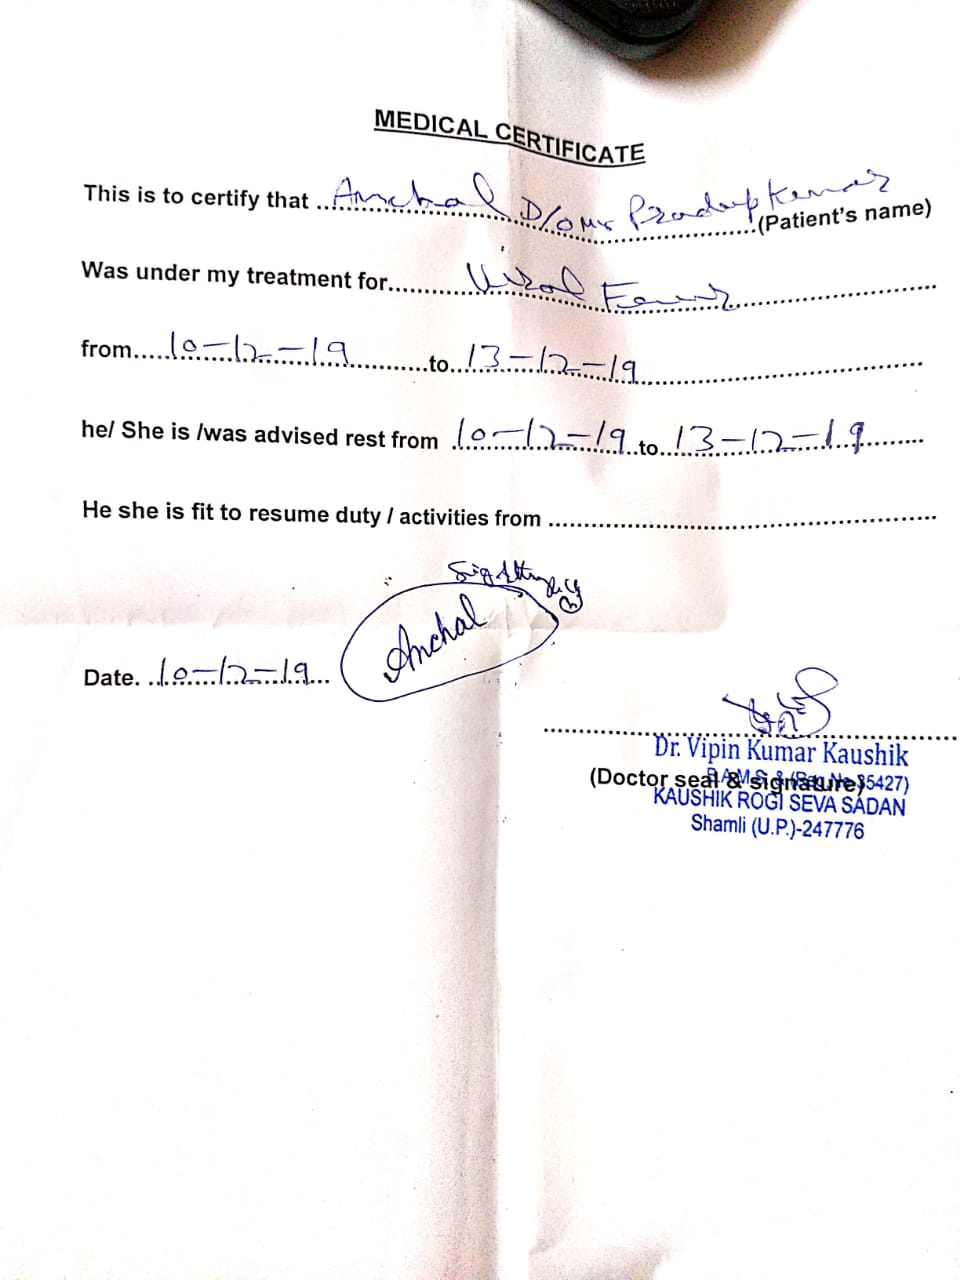 MEDICAL CERTIFICATE
This is to certify that ..Anchal D/o Mr Pradeep Kumar (Patient's name)
Was under my treatment for...Viral Fever...
from.....10-12-19...to..13-12-19...
he/ She is /was advised rest from ..10-12-19..to..13-12-19...
He she is fit to resume duty / activities from ...
Anchal
Date. ..10-12-19...
Dr. Vipin Kumar Kaushik
(Doctor seal & signature) 35427)
KAUSHIK ROGI SEVA SADAN
Shamli (U.P.)-247776